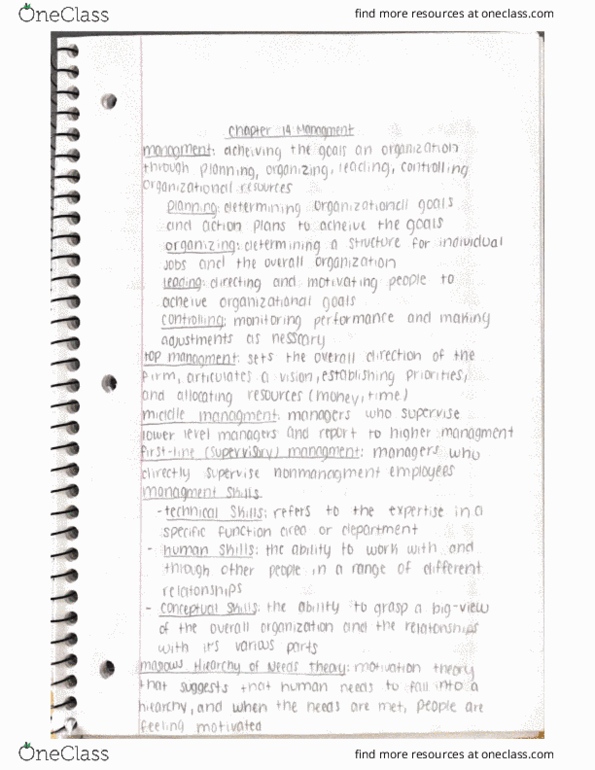 OneClass
find more resources at oneclass.com
Chapter 14 Managment
managment: acheiving the goals an organization
through planning, organizing, leading, controlling
organizational resources
planning: determining organizationall goals
and action plans to acheive the goals
organizing: determining a structure for individual
jobs and the overall organization
leading: directing and motivating people to
acheive organizational goals
controlling: monitoring performance and making
adjustments as nessary
top managment: sets the overall direction of the
firm, articulates a vision, establishing priorities,
and allocating resources (money, time)
middle managment: managers who supervise
lower level managers and report to higher managment
first-line (supervisory) managment: managers who
directly supervise nonmanagment employees
managment skills
- technical skills: refers to the expertise in a
specific function area or department
- human skills: the ability to work with and
through other people in a range of different
relationships
- conceptual skills: the ability to grasp a big-view
of the overall organization and the relationships
with its various parts
maslows Hierarchy of Needs Theory: motivation theory
that suggests that human needs to fall into a
hierarchy, and when the needs are met, people are
feeling motivated
OneClass
find more resources at oneclass.com